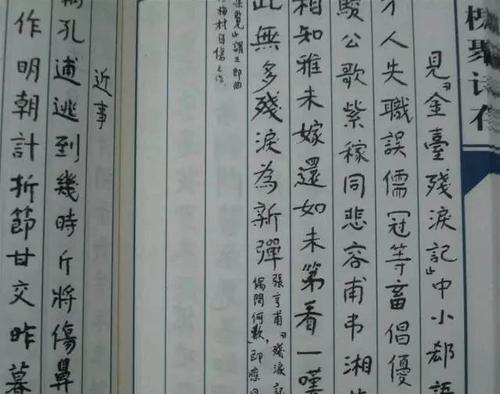 見「金臺殘淚記」中小郄語
才人失職誤儒冠等畜倡優
駿公歌紫稼同悲容甫弔湘
相知雅未嫁還如未第看一嘆
此無多殘淚為新彈
張亨甫「殘淚記
偈問何歎,即應
梅村自傷之作
近事
孔逋逃到幾時斤將傷鼻
作明朝計折節甘交昨暮